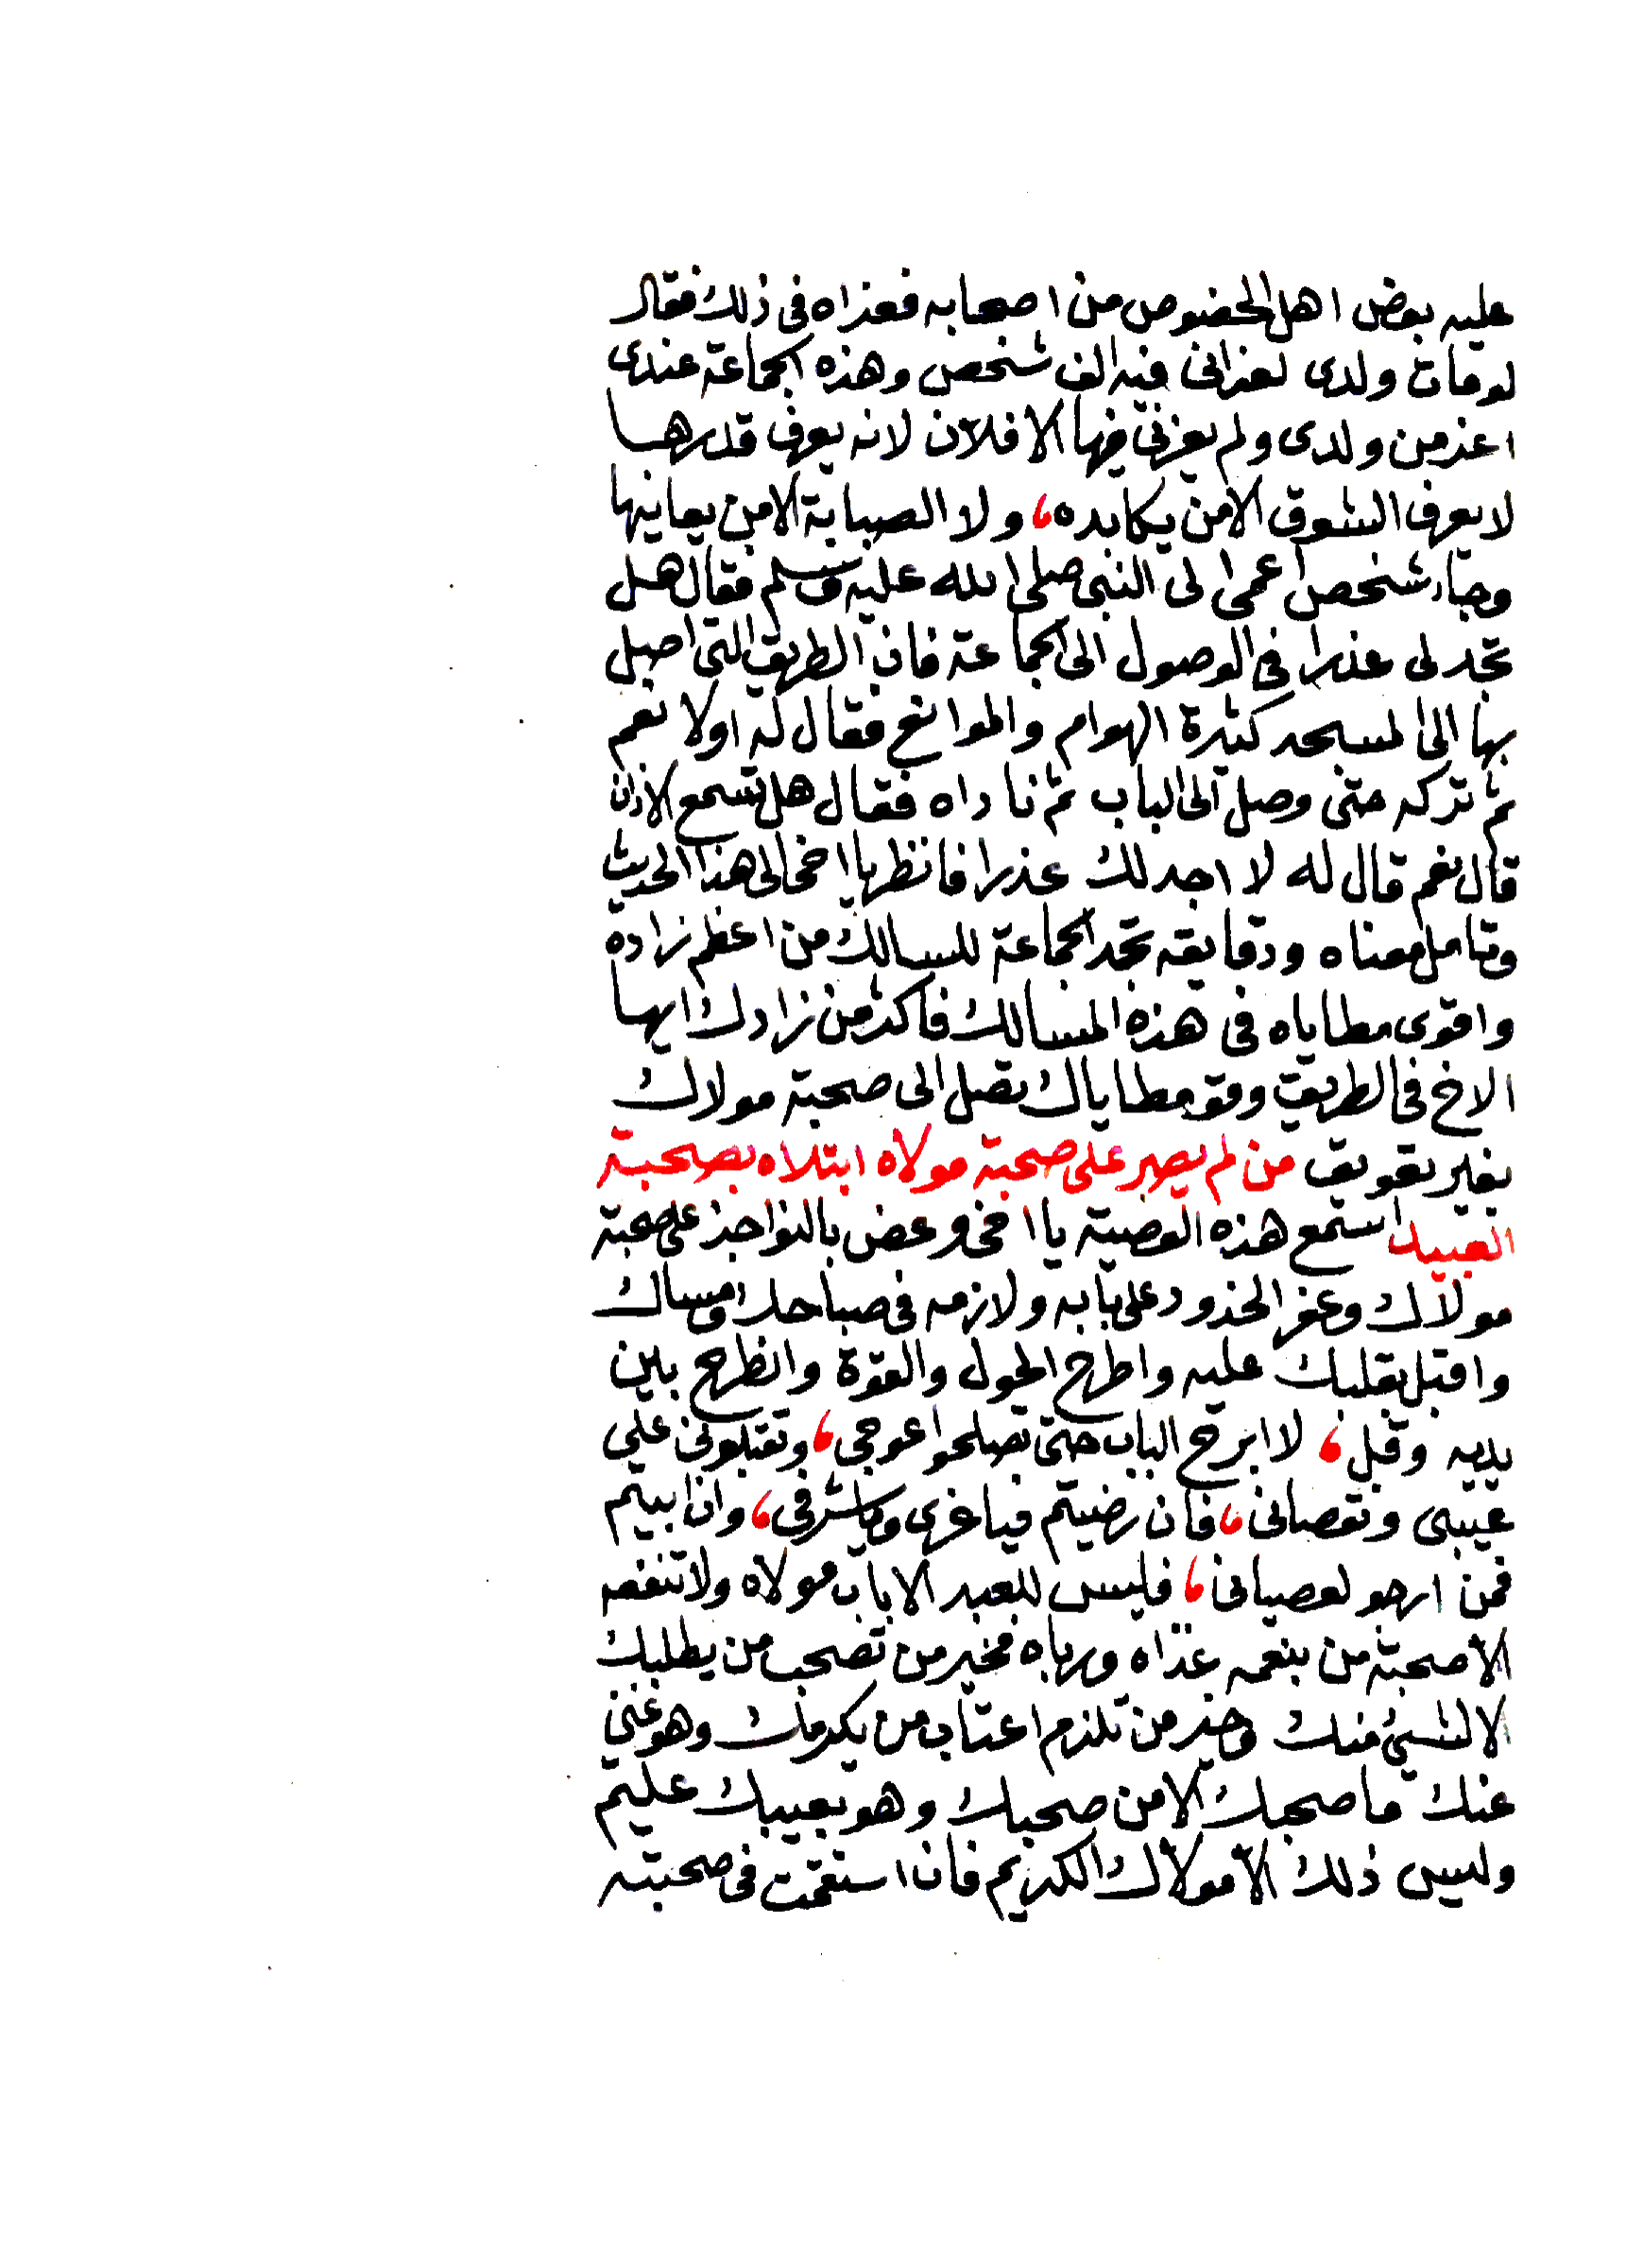 عليه بعض اهل الخصوص من اصحابه فعزاه فى ذلك فقال
لو مات ولدى لعزانى فيه الف شخص وهذه الجماعة عندى
اعز من ولدى ولم يعزنى فيها الا فلان لانه يعرف قدرها
لا يعرف الشوق الا من يكابده، ولا الصبابة الا من يعانيها
وجاء شخص اعمى الى النبى صلى الله عليه وسلم فقال هل
تجد لى عذرا فى الوصول الى الجماعة فان الطريق التى اصل
بها الى المسجد كثيرة الهوام والموانع فقال له اولا نعم
ثم تركه حتى وصل الى الباب ثم ناداه فقال هل تسمع الاذان
قال نعم قال له لا اجد لك عذرا فانظر يا اخى الى هذا الحديث
وتامل معناه ودقايقه تجد الجماعة للسالك من اعظم زاده
واقوى مطاياه فى هذه المسالك فاكثر من زادك ايها
الاخ فى الطريق وقو مطاياك تصل الى صحبة مولاك
بغير تعويق من لم يصبر على صحبة مولاه ابتلاه بصحبة
العبيد استمع هذه الوصية يا اخى وعض بالنواجذ على صحبة
مولاك وعفر الخدود على بابه ولازمه فى صباحك ومساك
واقبل بقلبك عليه واطرح الحول والقوة وانطرح بين
يديه وقل، لا ابرح الباب حتى تصلحوا عوجى، وتقبلونى على
عيبى ونقصانى، فان رضيتم فيا عزى ويا شرفى، وان ابيتم
فمن ارجو لعصيانى، فليس للعبد الا باب مولاه ولا تنفعه
الا صحبة من بنعمه غذاه ورباه فخير من تصحب من يطلبك
لا لشيئ منك وخير من تلزم اعتاب من يكرمك وهو غنى
عنك ما صحبك الا من صحبك وهو بعيبك عليم
وليس ذلك الا مولاك الكريم فان استقمت فى صحبته